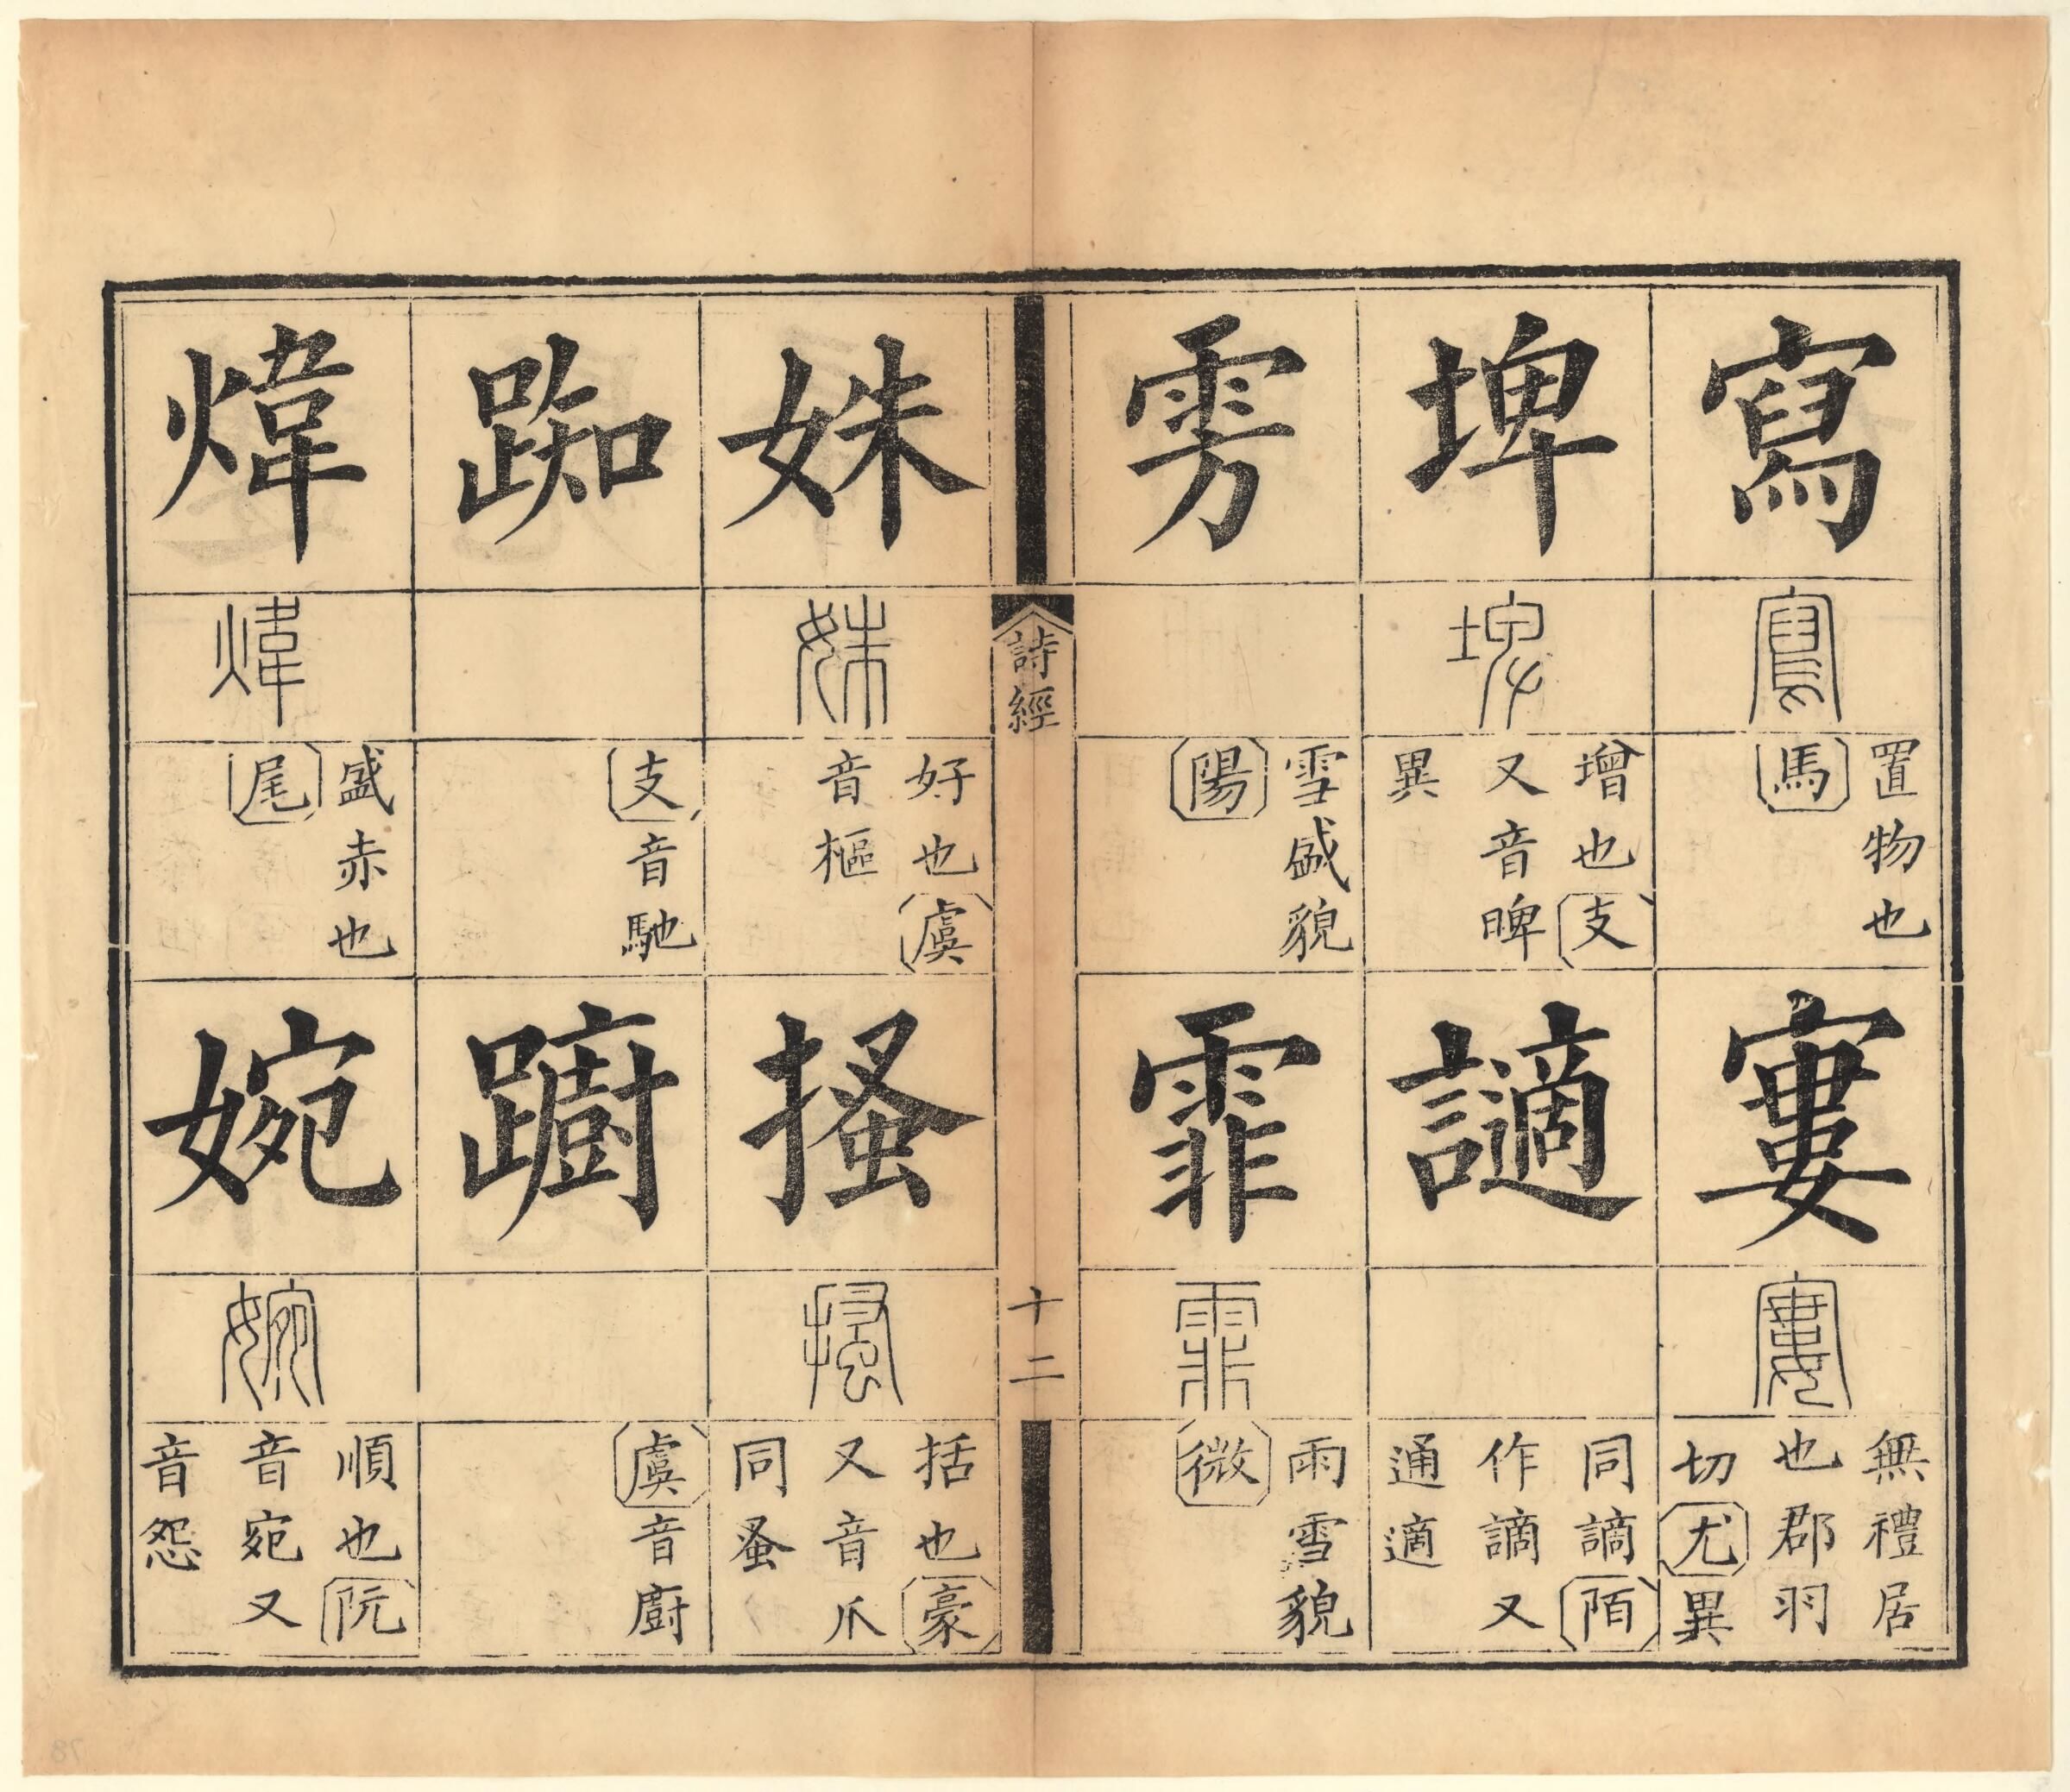 寫
置物也
馬
窶
無禮居
也郡羽
切尤異
埤
增也支
又音睥
異
讁
同謫陌
作謫又
通適
雱
雪盛貌
陽
霏
雨雪貌
微
詩經
十二
姝
好也虞
音樞
搔
括也豪
又音爪
同蚤
踟
支音馳
躕
虞音廚
煒
盛赤也
尾
婉
順也阮
音宛又
音怨